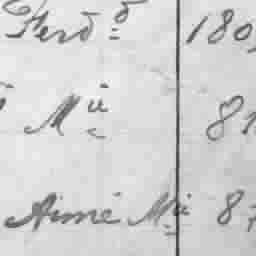 Ferdd 180
Mie 81
Aimé Mie 87